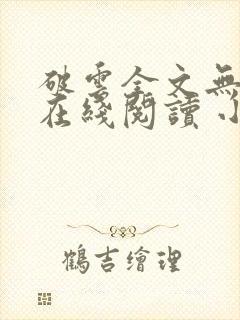 破雲全文無
在綫閱讀
鶴吉繪理